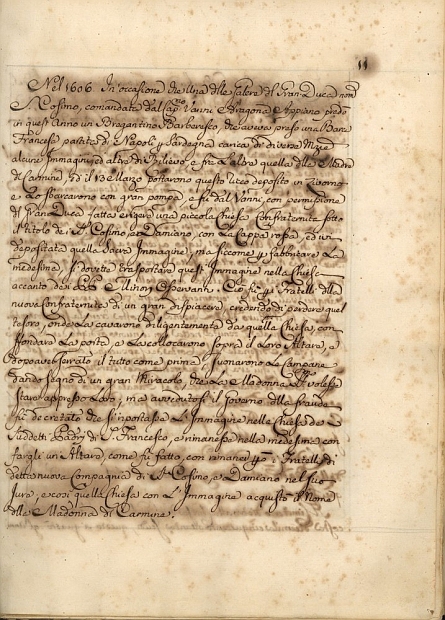 11
Nel 1606 In occasione che Una delle Galere del Gran Duca nom.
S. Cosimo, comandata dal Cap.no Vanni d'Aragona Appiano predò
in quest'Anno un Bregantino Barbaresco, che aveva preso una Barca
Francese partita di Napoli p Sardegna carica di diverse Mzie
alcune Immagini ed altro di Rilievo e frà l'altre quella della Madre
di Carmine, ed il 13 Marzo portarono questo ricco deposito in Livorno
e Lo sbarcarono con gran pompa, e fù dal Vanni, con permissione
del Gran Duca fatta erigere una piccola Chiesa Confraternita sotto
il titolo dei S.ti Cosimo e Damiano, con La Cappa rossa, ed ivi
depositata quella Sacra Immagine, ma siccome p fabbricare La
medesima, si dovette trasportare quest'Immagine nella Chiesa
accanto dei Minori Osservanti. Ciò fù p i Fratelli della
nuova Confraternita di un gran dispiacere, credendo di perdere quel
tesoro, onde La cavarono diligentemente da quella Chiesa, con
sfondare La porta, e La collocarono sopra il Loro Altare, e
dopo aver serrato il tutto come prima suonarono Le Campane
dando segno di un gran Miracolo, che La Madonna Volesse
stare appresso Loro; ma avvedutosi il Governo della fraude
fù decretato che si riportasse L'Immagine nella Chiesa de
Suddetti Padri di S. Francesco, e rimanesse nella medesima con
fargli un Altare, come fù fatto, con rimaner p i Fratelli di
detta nuova Compagnia di S.ti Cosimo, e Damiano nel suo
Jure, e così quella Chiesa con L'Immagine acquistò il Nome
della Madonna di Carmine.